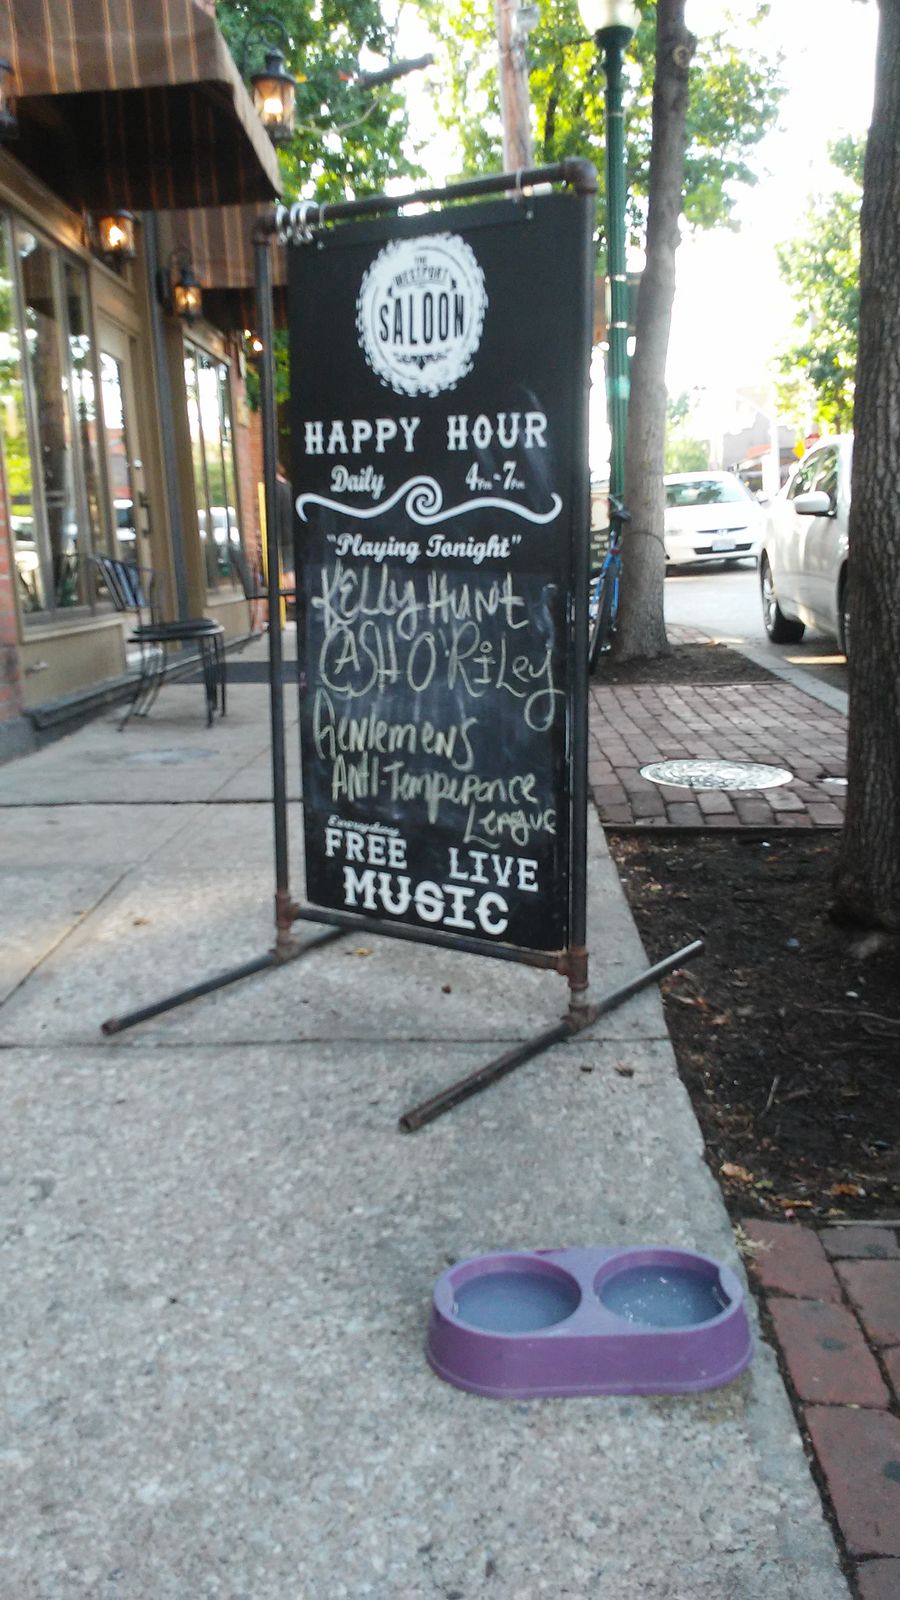 THE
WESTPORT
SALOON
HAPPY HOUR
Daily 4PM-7PM
"Playing Tonight"
KELLY HUNT
CASH O'RiLey
Genlemens
ANTI-Temperance
League
Everyday
FREE LIVE
MUSIC